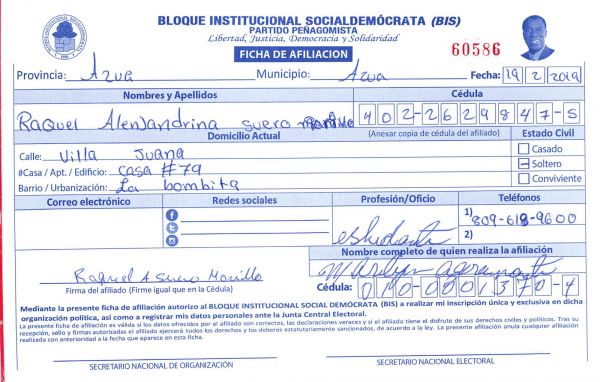 BLOQUE INSTITUCIONAL SOCIALDEMÓCRATA (BIS)
PARTIDO PEÑAGOMISTA
Libertad, Justicia, Democracia y Solidaridad
FICHA DE AFILIACION
60586
Provincia: Azua Municipio: Azua Fecha: 19 2 2019
Nombres y Apellidos Cédula
Raquel Alenjandrina suero 402-2629847-5
Domicilio Actual (Anexar copia de cédula del afiliado) Estado Civil
Calle: Villa Juana Casado
#Casa / Apt. / Edificio: casa #79 Soltero
Barrio / Urbanización: La bombita Conviviente
Correo electrónico Redes sociales Profesión/Oficio Teléfonos
estudiante 1) 809-618-9600
2)
Nombre completo de quien realiza la afiliación
Raquel A Suero Morillo Marilyn agramonte
Firma del afiliado (Firme igual que en la Cédula) Cédula: 010-0001370-4
Mediante la presente ficha de afiliación autorizo al BLOQUE INSTITUCIONAL SOCIAL DEMÓCRATA (BIS) a realizar mi inscripción única y exclusiva en dicha
organización política, así como a registrar mis datos personales ante la Junta Central Electoral.
La presente ficha de afiliación es válida si los datos ofrecidos por el afiliado son correctos, las declaraciones veraces y si el afiliado tiene el disfrute de sus derechos civiles y políticos. Tras su
recepción, sello y firmas autorizadas el afiliado ejercerá todos los derechos y los deberes estatutariamente sancionados, de acuerdo a la ley. La presente afiliación anula cualquier afiliación
realizada con anterioridad a la fecha que aparece en esta ficha.
SECRETARIO NACIONAL DE ORGANIZACIÓN SECRETARIO NACIONAL ELECTORAL